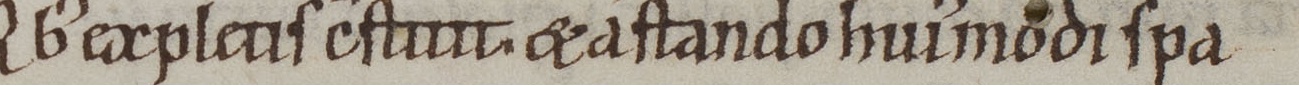 Qb᾽ expletis c̄stitit. & astando hui᾽modi spa